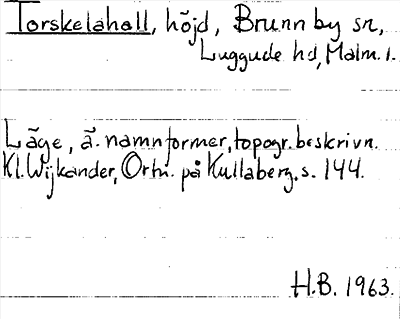 Torskelahall, höjd, Brunnby sn,
Luggude hd, Malm. l.
Läge, ä. namnformer, topogr. beskrivn.
Kl. Wijkander, Ortn. på Kullaberg. s. 144.
H.B. 1963.